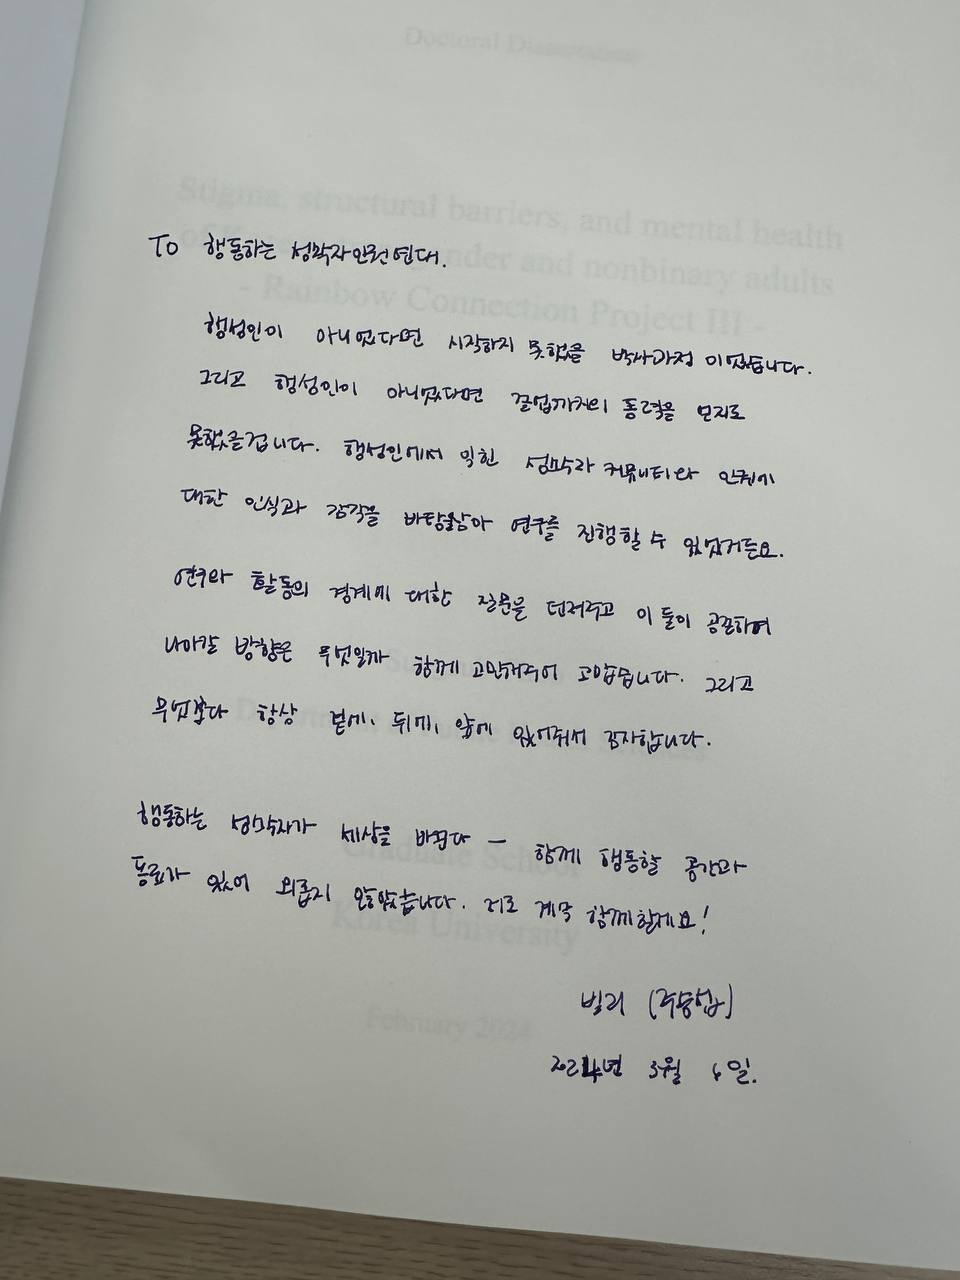 Doctoral Dissertation
Stigma, structural barriers, and mental health
To 행동하는 성소수자인권연대.
and nonbinary adults
- Rainbow Connection Project III -
행성인이 아니었다면 시작하지 못했을 박사과정이었습니다.
그리고 행성인이 아니었다면 졸업까지의 동력을 얻지도
못했을겁니다. 행성인에서 익힌 성소수자 커뮤니티와 인권에
대한 인식과 감각을 바탕삼아 연구를 진행할 수 있었거든요.
연구와 활동의 경계에 대한 질문을 던져주고 이 둘이 공존하며
나아갈 방향은 무엇일까 함께 고민해주어 고맙습니다. 그리고
무엇보다 항상 곁에, 뒤에, 앞에 있어줘서 감사합니다.
행동하는 성소수자가 세상을 바꾼다 — 함께 행동할 공간과
Graduate School
동료가 있어 외롭지 않았습니다. 저도 계속 함께할게요!
Korea University
빌리 (주승섭)
February 2024
2024년 3월 6일.